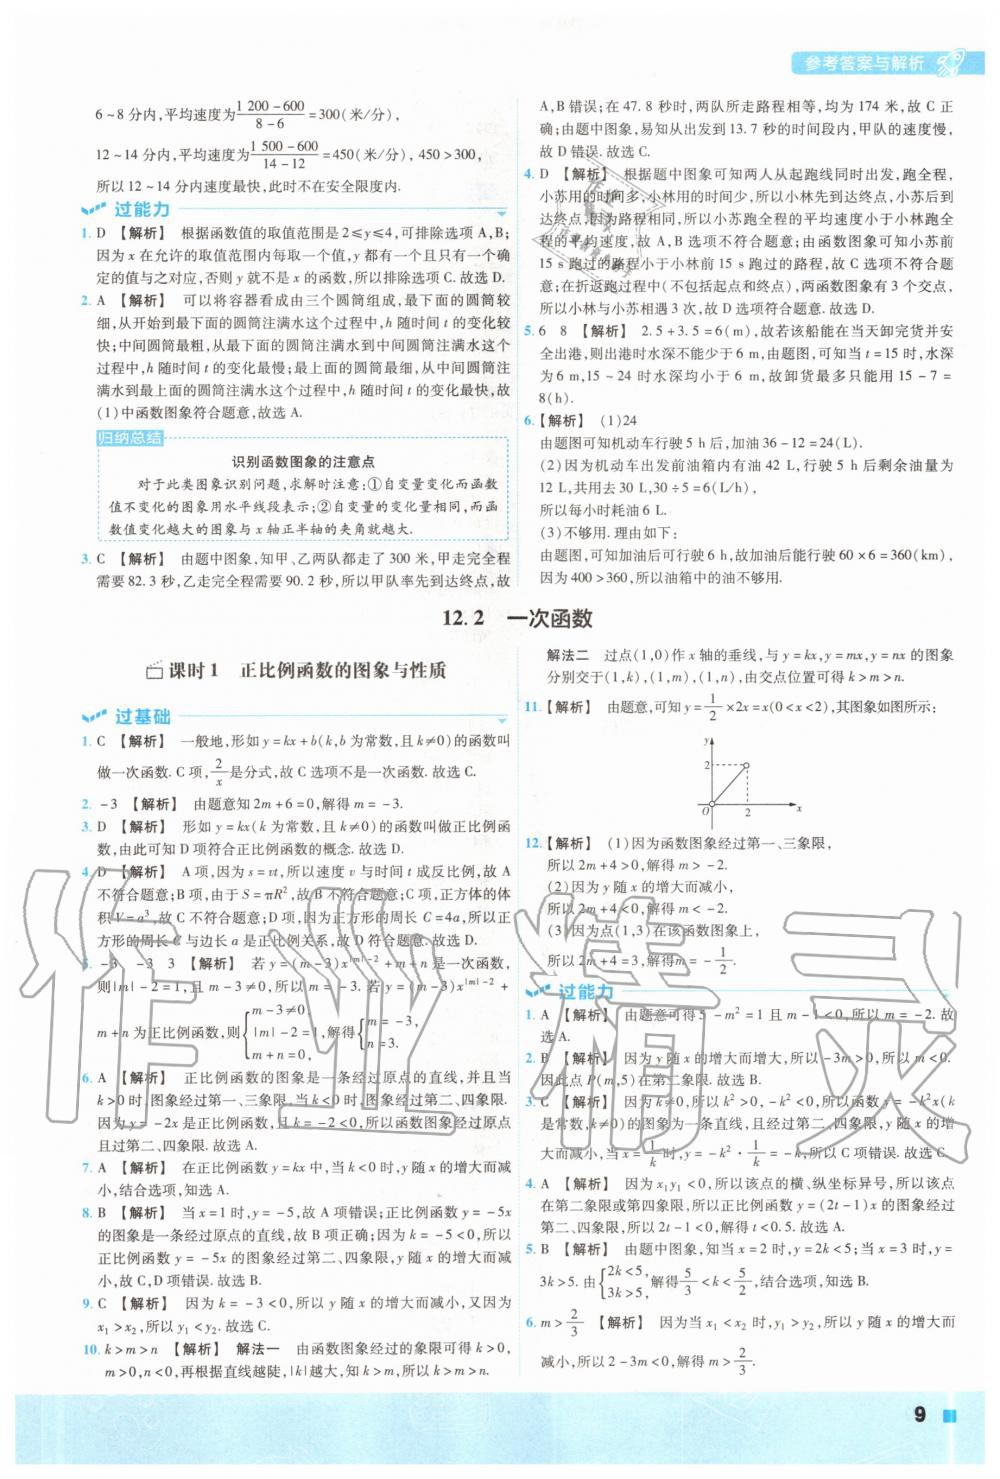 参考答案与解析
6~8分内,平均速度为(1 200-600)/(8-6)=300(米/分),
12~14分内,平均速度为(1 500-600)/(14-12)=450(米/分), 450>300,
所以12~14分内速度最快,此时不在安全限度内.
过能力
1. D 【解析】 根据函数值的取值范围是2≤y≤4,可排除选项A,B;
因为x在允许的取值范围内每取一个值,y都有一个且只有一个确
定的值与之对应,否则y就不是x的函数,所以排除选项C.故选D.
2. A 【解析】 可以将容器看成由三个圆筒组成,最下面的圆筒较
细,从开始到最下面的圆筒注满水这个过程中,h随时间t的变化较
快;中间圆筒最粗,从最下面的圆筒注满水到中间圆筒注满水这个
过程中,h随时间t的变化最慢;最上面的圆筒最细,从中间圆筒注
满水到最上面的圆筒注满水这个过程中,h随时间t的变化最快,故
(1)中函数图象符合题意,故选A.
归纳总结
识别函数图象的注意点
对于此类图象识别问题,求解时注意:①自变量变化而函数
值不变化的图象用水平线段表示;②自变量的变化量相同,而函
数值变化越大的图象与x轴正半轴的夹角就越大.
3. C 【解析】 由题中图象,知甲、乙两队都走了300米,甲走完全程
需要82.3秒,乙走完全程需要90.2秒,所以甲队率先到达终点,故
A,B错误;在47.8秒时,两队所走路程相等,均为174米,故C正
确;由题中图象,易知从出发到13.7秒的时间段内,甲队的速度慢,
故D错误.故选C.
4. D 【解析】 根据题中图象可知两人从起跑线同时出发,跑全程,
小苏用的时间多,小林用的时间少,所以小林先到达终点,小苏后到
达终点,因为路程相同,所以小苏跑全程的平均速度小于小林跑全
程的平均速度,故A,B选项不符合题意;由函数图象可知小苏前
15 s跑过的路程小于小林前15 s跑过的路程,故C选项不符合题
意;在折返跑过程中(不包括起点和终点),两函数图象有3个交点,
所以小林与小苏相遇3次,故D选项符合题意.故选D.
5. 6 8 【解析】 2.5+3.5=6(m),故若该船能在当天卸完货并安
全出港,则出港时水深不能少于6 m,由题图,可知当t=15时,水深
为6 m,15~24时水深均小于6 m,故卸货最多只能用15-7=
8(h).
6.【解析】 (1)24
由题图可知机动车行驶5 h后,加油36-12=24(L).
(2)因为机动车出发前油箱内有油42 L,行驶5 h后剩余油量为
12 L,共用去30 L,30÷5=6(L/h),
所以每小时耗油6 L.
(3)不够用.理由如下:
由题图,可知加油后可行驶6 h,故加油后能行驶60×6=360(km),
因为400>360,所以油箱中的油不够用.
12.2 一次函数
课时1 正比例函数的图象与性质
过基础
1. C 【解析】 一般地,形如y=kx+b(k,b为常数,且k≠0)的函数叫
做一次函数.C项,2/x是分式,故C选项不是一次函数.故选C.
2. -3 【解析】 由题意知2m+6=0,解得m=-3.
3. D 【解析】 形如y=kx(k为常数,且k≠0)的函数叫做正比例函
数,由此可知D项符合正比例函数的概念.故选D.
4. D 【解析】 A项,因为s=vt,所以速度v与时间t成反比例,故A
不符合题意;B项,由于S=πR²,故B不符合题意;C项,正方体的体
积V=a³,故C不符合题意;D项,因为正方形的周长C=4a,所以正
方形的周长C与边长a是正比例关系,故D符合题意.故选D.
5. -3 -3 3 【解析】 若y=(m-3)x^(|m|-2)+m+n是一次函数,
则|m|-2=1,且m-3≠0,所以m=-3.若y=(m-3)x^(|m|-2)+
m+n为正比例函数,则{m-3≠0, |m|-2=1, m+n=0,解得{m=-3, n=3.
6. A 【解析】 正比例函数的图象是一条经过原点的直线,并且当
k>0时,图象经过第一、三象限,当k<0时,图象经过第二、四象限.
因为y=-2x是正比例函数,且k=-2<0,所以图象是经过原点
且过第二、四象限.故选A.
7. A 【解析】 在正比例函数y=kx中,当k<0时,y随x的增大而减
小,结合选项,知选A.
8. B 【解析】 当x=1时,y=-5,故A项错误;正比例函数y=-5x
的图象是一条经过原点的直线,故B项正确;因为k=-5<0,所以
正比例函数y=-5x的图象经过第二、四象限,y随x的增大而减
小,故C,D项错误.故选B.
9. C 【解析】 因为k=-3<0,所以y随x的增大而减小,又因为
x₁>x₂,所以y₁<y₂.故选C.
10. k>m>n 【解析】 解法一 由函数图象经过的象限可得k>0,
m>0,n>0,再根据直线越陡,|k|越大,知k>m,所以k>m>n.
解法二 过点(1,0)作x轴的垂线,与y=kx,y=mx,y=nx的图象
分别交于(1,k),(1,m),(1,n),由交点位置可得k>m>n.
11.【解析】 由题意,可知y=1/2×2x=x(0<x<2),其图象如图所示:
y
2
O 2 x
12.【解析】 (1)因为函数图象经过第一、三象限,
所以2m+4>0,解得m>-2.
(2)因为y随x的增大而减小,
所以2m+4<0,解得m<-2.
(3)因为点(1,3)在该函数图象上,
所以2m+4=3,解得m=-1/2.
过能力
1. A 【解析】 由题意可得5-m²=1且m-1<0,所以m=-2.故
选A.
2. B 【解析】 因为y随x的增大而增大,所以-3m>0,所以m<0.
因此点P(m,5)在第二象限.故选B.
3. C 【解析】 因为k≠0,所以k²>0,-k²<0,所以函数y=-k²x(k
是常数,k≠0)的图象为一条直线,且经过第二、四象限,y随x的增
大而减小.当x=1/k时,y=-k²·1/k=-k,所以C项错误.故选C.
4. A 【解析】 因为x₁y₁<0,所以该点的横、纵坐标异号,所以该点
在第二象限或第四象限,所以正比例函数y=(2t-1)x的图象经过
第二、四象限,所以2t-1<0,解得t<0.5.故选A.
5. B 【解析】 由题中图象,知当x=2时,y=2k<5;当x=3时,y=
3k>5.由{2k<5, 3k>5,解得5/3<k<5/2,结合选项,知选B.
6. m>2/3 【解析】 因为当x₁<x₂时,y₁>y₂,所以y随x的增大而
减小,所以2-3m<0,解得m>2/3.
9
作业精灵